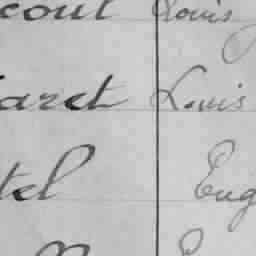 court Louis
aret Louis
tel Eug